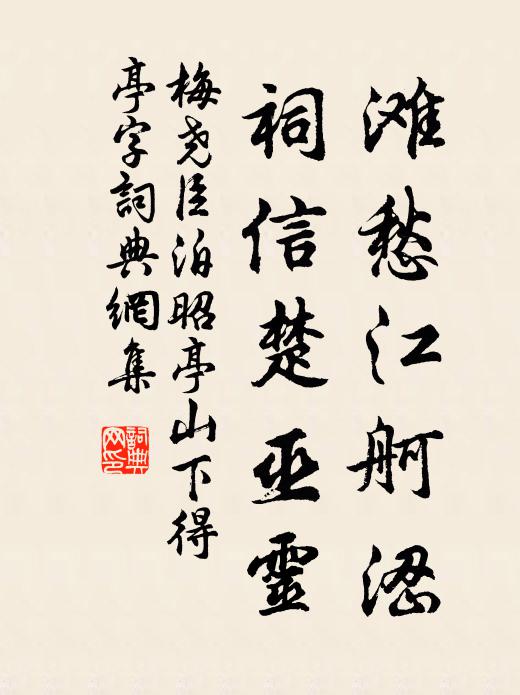 滩愁江舸涩
祠信楚巫靈
梅尧臣泊昭亭山下得
亭字詞典網集
詞典网印